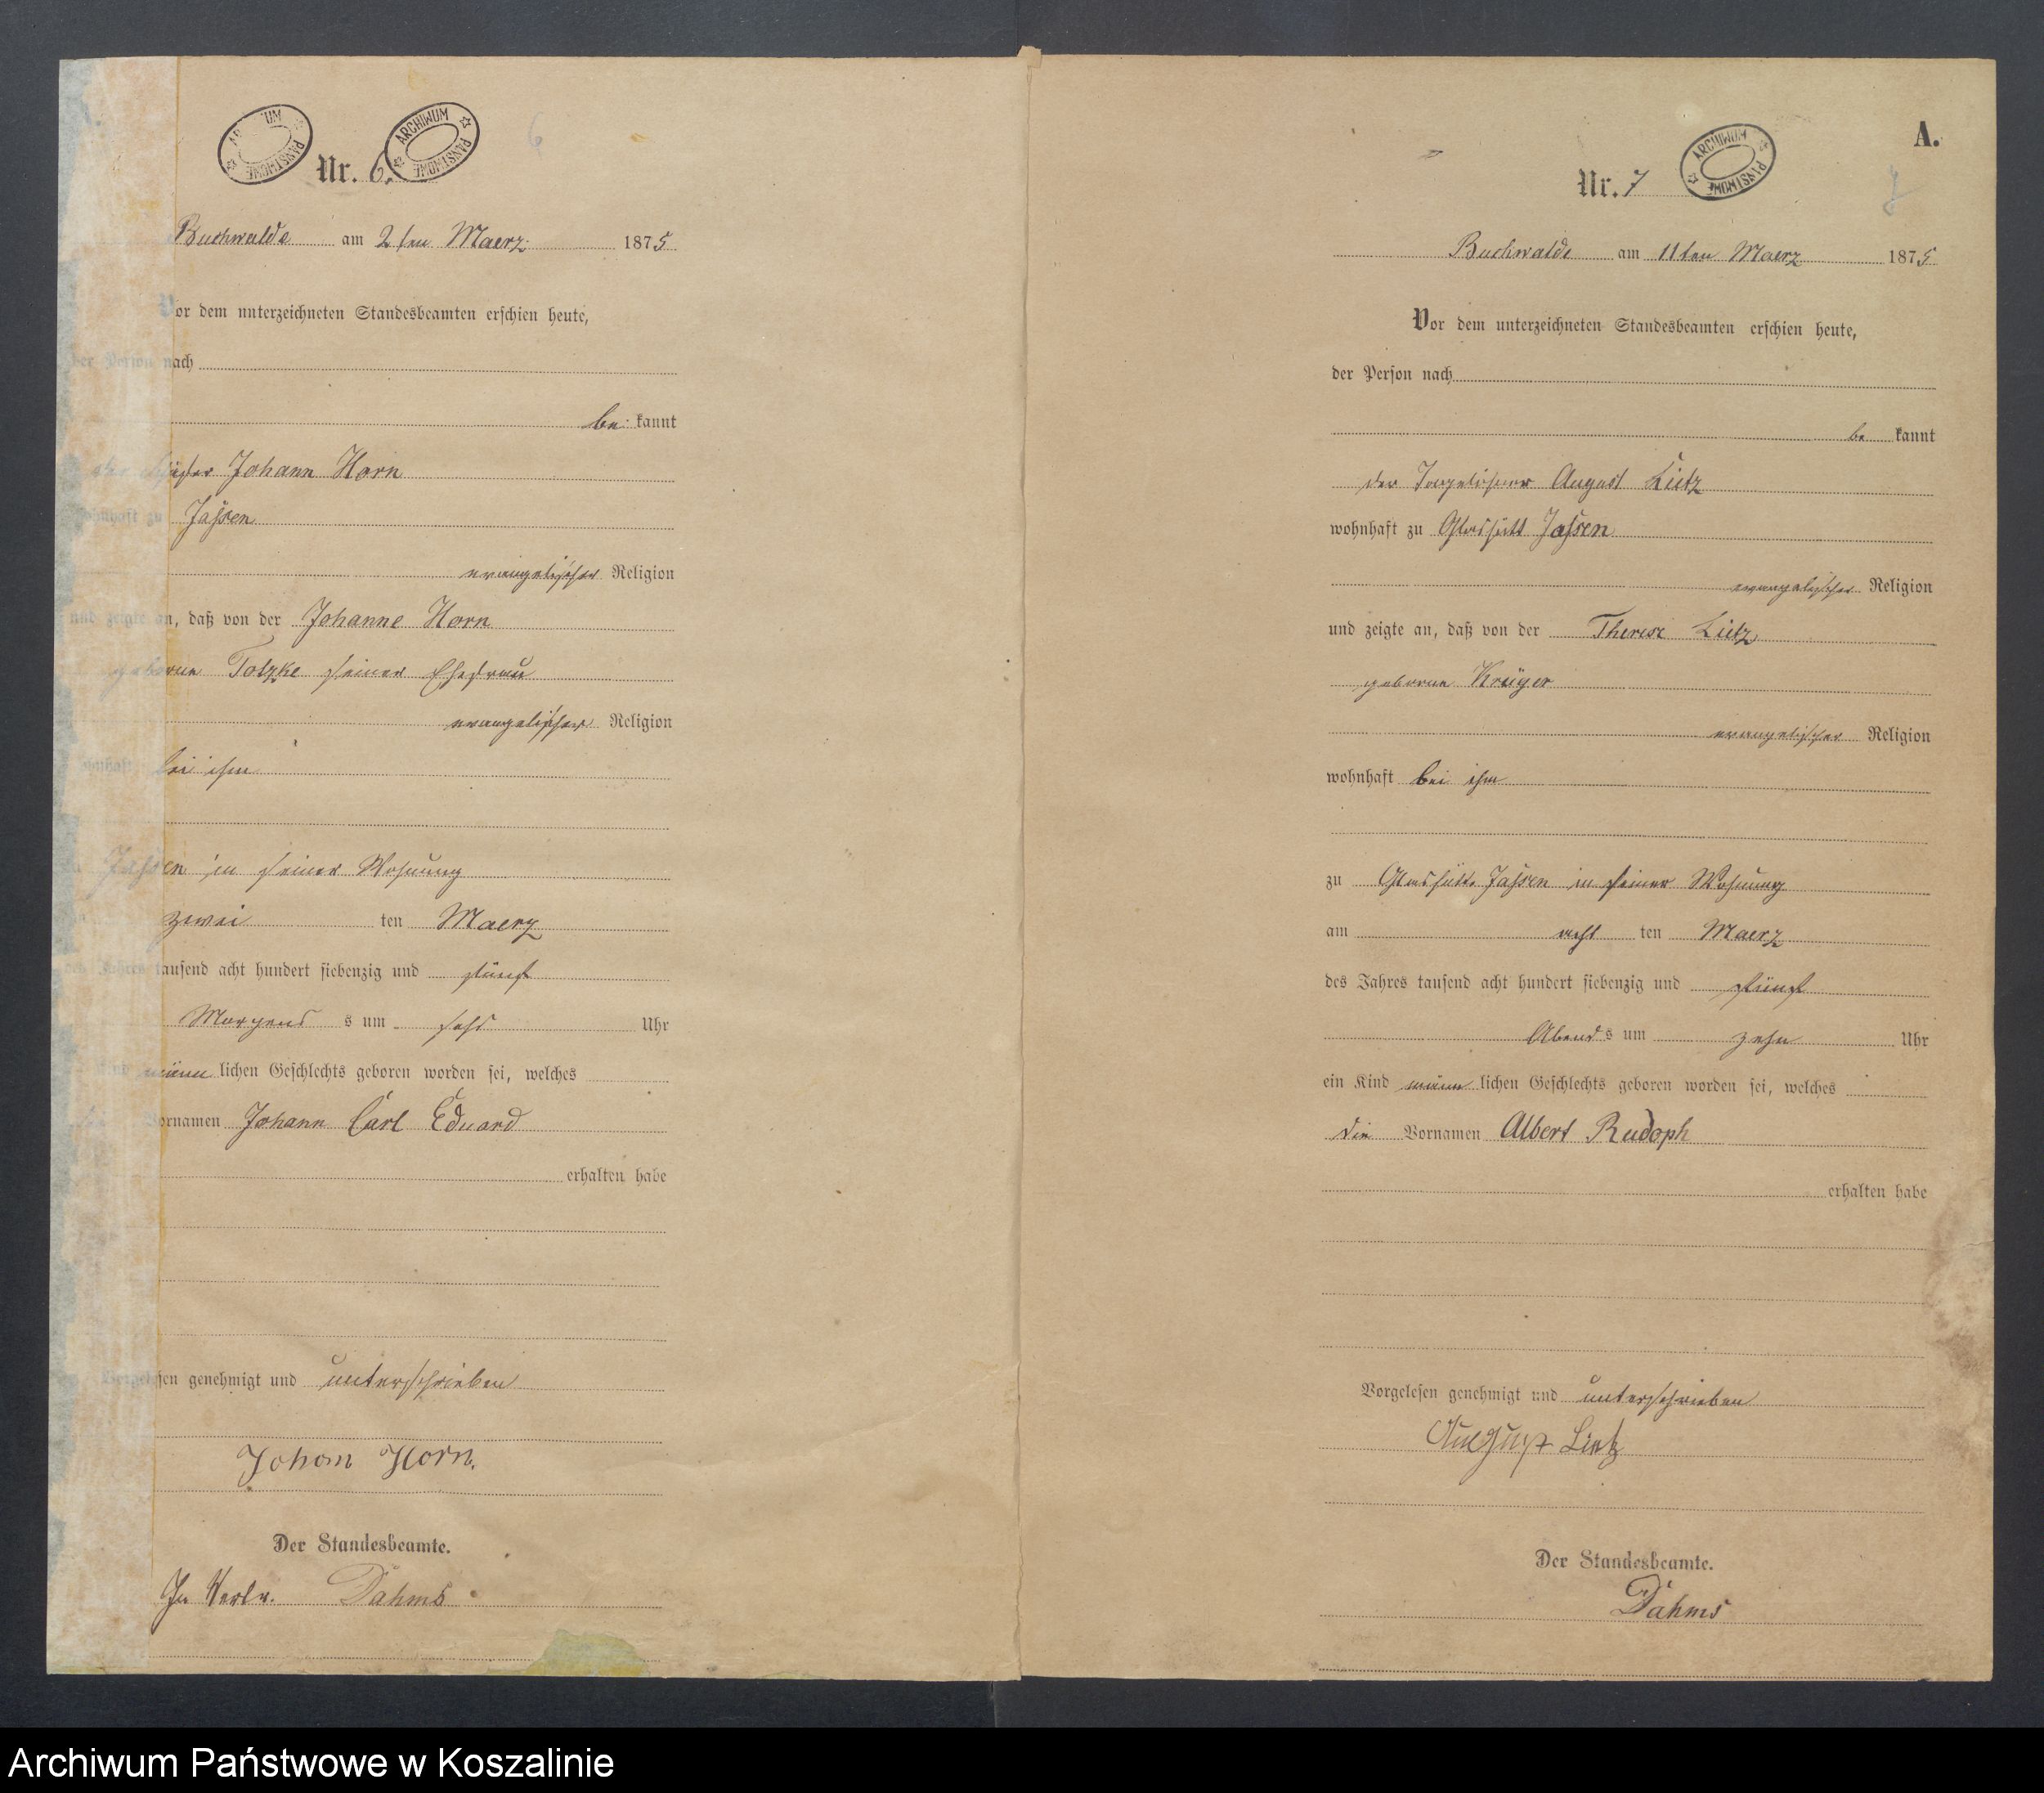 ARCHIWUM PAŃSTWOWE
ARCHIWUM PAŃSTWOWE
6
Nr. 6.
Buchwalde am 2ten Maerz 1875
Vor dem unterzeichneten Standesbeamten erschien heute,
der Person nach
be kannt
der Johann Horn
wohnhaft zu Jassen
evangelischer Religion
und zeigte an, daß von der Johanne Horn
geborne Totzke seiner Ehefrau
evangelischer Religion
wohnhaft bei ihm
Jassen in seiner Wohnung
zwei ten Maerz
des Jahres tausend acht hundert siebenzig und fünf
Morgens s um sechs Uhr
männ lichen Geschlechts geboren worden sei, welches
Vornamen Johann Carl Eduard
erhalten habe
Vorgelesen genehmigt und unterschrieben
Johann Horn.
Der Standesbeamte.
In Vertr. Dahms
A.
ARCHIWUM PAŃSTWOWE
Nr. 7
7
Buchwalde am 11ten Maerz 1875
Vor dem unterzeichneten Standesbeamten erschien heute,
der Person nach
be kannt
der Tagelöhner August Lietz
wohnhaft zu Glashütt Jassen
evangelischer Religion
und zeigte an, daß von der Therese Lietz
geborne Krüger
evangelischer Religion
wohnhaft bei ihm
zu Glashütte Jassen in seiner Wohnung
am acht ten Maerz
des Jahres tausend acht hundert siebenzig und fünf
Abend s um zehn Uhr
ein Kind männ lichen Geschlechts geboren worden sei, welches
die Vornamen Albert Rudoph
erhalten habe
Vorgelesen genehmigt und unterschrieben
August Lietz
Der Standesbeamte.
Dahms
Archiwum Państwowe w Koszalinie